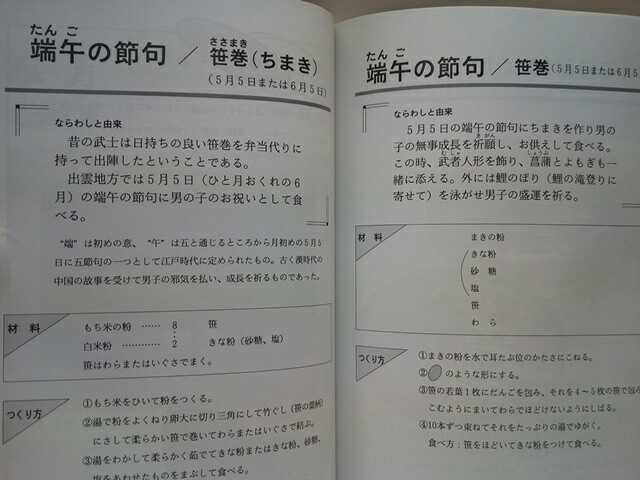 たんご
端午の節句／笹巻（ちまき）
ささまき
（５月５日または６月５日）
ならわしと由来
昔の武士は日持ちの良い笹巻を弁当代りに
持って出陣したということである。
出雲地方では５月５日（ひと月おくれの６
月）の端午の節句に男の子のお祝いとして食
べる。
“端”は初めの意、“午”は五と通じるところから月初めの５月５
日に五節句の一つとして江戸時代に定められたもの。古く漢時代の
中国の故事を受けて男子の邪気を払い、成長を祈るものであった。
材料
もち米の粉 …… ８　笹
白米粉 ………… ２　きな粉（砂糖、塩）
笹はわらまたはいぐさでまく。
つくり方
①もち米をひいて粉をつくる。
②湯で粉をよくねり卵大に切り三角にして竹ぐし（笹の葉柄）
にさして柔らかい笹で巻いてわらまたはいぐさで結ぶ。
③湯をわかして柔らかく茹でてきな粉またはきな粉、砂糖、
塩をあわせたものをまぶして食べる。
たんご
端午の節句／笹巻（５月５日または６月５
ならわしと由来
５月５日の端午の節句にちまきを作り男の
きがん
子の無事成長を祈願し、お供えして食べる。
むしゃ　しょうぶ
この時、武者人形を飾り、菖蒲とよもぎも一
緒に添える。外には鯉のぼり（鯉の滝登りに
寄せて）を泳がせ男子の盛運を祈る。
材料
まきの粉
きな粉
砂糖
塩
笹
わら
つくり方
①まきの粉を水で耳たぶ位のかたさにこねる。
②のような形にする。
③笹の若葉１枚にだんごを包み、それを４～５枚の笹で包み
こむようにまいてわらでほどけないようにしばる。
④10本ずつ束ねてそれをたっぷりの湯でゆがく。
食べ方：笹をほどいてきな粉をつけて食べる。